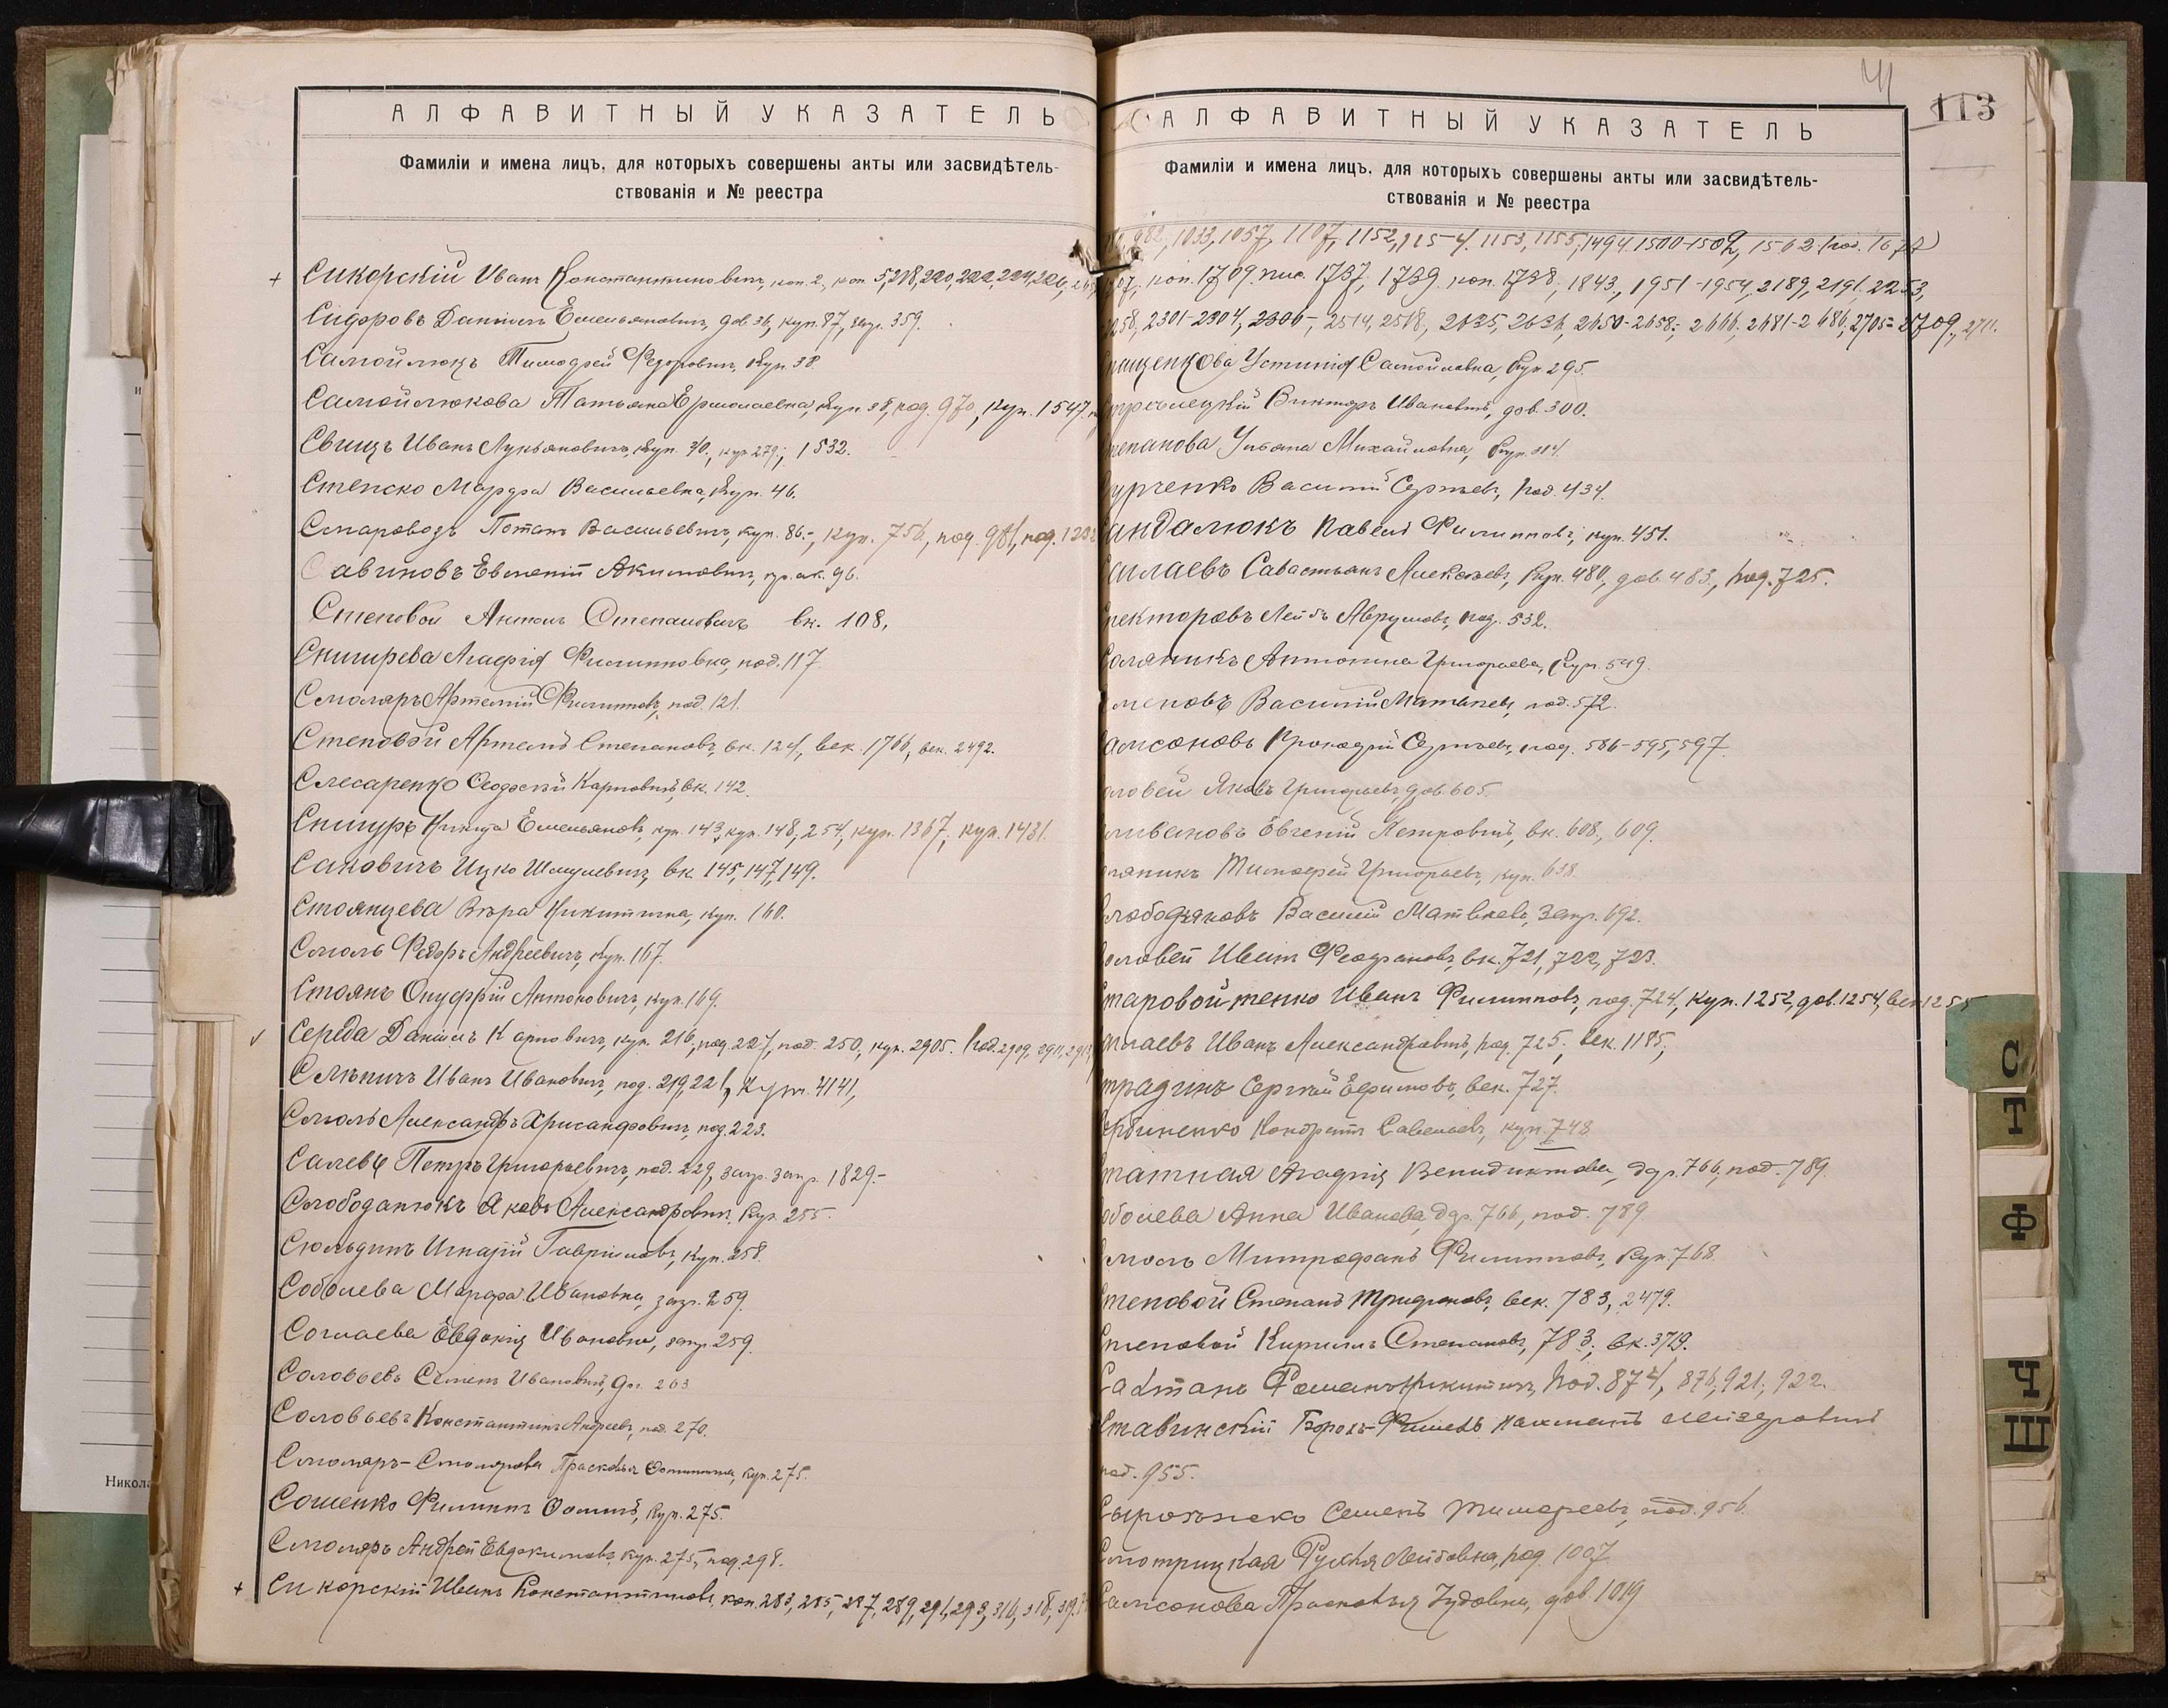 АЛФАВИТНЫЙ УКАЗАТЕЛЬ
Фамиліи и имена лицъ, для которыхъ совершены акты или засвидѣтель-
ствованія и № реестра
Сикорскій Иванъ Константиновичъ, коп. 2, коп. 5, 218, 220, 222, 224, 226,
Сидоровъ Даніилъ Емельяновичъ, дов. 36, куп. 87, запр. 359.
Самойлюкъ Тимофей Федоровичъ, Куп. 38.
Самойлюкова Татьяна Ермолаевна, Куп. 38, под. 970, куп. 1547.
Свищъ Иванъ Лукьяновичъ, Куп. 40, куп. 279; 1532.
Стенско Марфа Васильевна, Куп. 46.
Старовозъ Потапъ Васильевичъ, куп. 86.-, куп. 756, под. 981, под.
Савиновъ Евгеній Акимовичъ, 96.
Степовой Антонъ Степановичъ вк. 108,
Снигирева Агафія Филипповна, под. 117
Смоляръ Артемій Филипповъ, под. 121.
Степовой Артемъ Степановъ, вк. 124, век. 1766, век. 2492.
Слесаренко Феодосій Карповичъ, вк. 142.
Снигуръ Никита Емельяновъ, куп. 143, куп. 148, 254, куп. 1367, куп. 1431.
Саковичъ Ицко Шмулевичъ, вк. 145, 147, 149.
Стоянцева Вѣра Никитична, куп. 160.
Смоль Федоръ Андреевичъ, Куп. 167.
Стоянъ Онуфрій Антоновичъ, куп. 169.
Середа Даніилъ Карповичъ, куп. 216, под. 227, под. 250, куп. 2905. Под. 2909, 2911,
Слѣпичъ Иванъ Ивановичъ, под. 219, 221, Куп. 4141,
Смоль Александръ Хрисанфовичъ, под. 223.
Салевъ Петръ Григорьевичъ, под. 229, запр. запр. 1829.-
Слободанюкъ Яковъ Александровичъ, Куп. 255.
Сюльдинъ Игнатій Гавриловъ, Куп. 258.
Соболева Марфа Ивановна, запр. 259.
Согласва Евдокія Ивановна, запр. 259.
Соловьевъ Семенъ Ивановичъ, дов. 263
Соловьевъ Константинъ Андреевъ, под. 270.
Смоляръ-Столярова Прасковья Фоминична, Куп. 275.
Сошенко Филиппъ Фоминъ, Куп. 275.
Смоляръ Андрей Евдокимовъ, куп. 275, под. 298.
Сикорскій Иванъ Константиновъ, коп. 283, 285, 287, 289, 291, 293, 316, 318, 319,
41
113
АЛФАВИТНЫЙ УКАЗАТЕЛЬ
Фамиліи и имена лицъ, для которыхъ совершены акты или засвидѣтель-
ствованія и № реестра
982, 1033, 1057, 1107, 1152, 1154, 1153, 1155, 1494, 1500-1502, 1562.
коп. 1709. 1737, 1739 коп. 1738, 1843, 1951-1954, 2189, 2191, 2253,
2258, 2301-2304, 2306-, 2514, 2518, 2635, 2636, 2650-2658.- 2666, 2681-2686, 2705-2709, 2711.
Устинія Самойловна, Куп. 295.
Викторъ Ивановичъ, дов. 300.
тепанова Ульяна Михайловна, Куп. 314.
урченко Василій Сергѣевъ, Под. 434.
андалюкъ Павелъ Филипповъ, куп. 451.
аглаевъ Савастьянъ Алексѣевъ, Куп. 480, дов. 483, под. 725.
пекторовъ Лейбъ Аврумовъ, под. 532.
оляникъ Антонина Григорьева, Куп. 549.
меновъ Василій Матвѣевъ, под. 572.
амсоновъ Прокофій Сергѣевъ, под. 586-595, 597.
оловей Яковъ Григорьевъ, дов. 605.
ливановъ Евгеній Петровичъ, вк. 608, 609.
оляникъ Тимофей Григорьевъ, куп. 638.
Слободзяковъ Василій Матвѣевъ, Запр. 692.
оловей Иванъ Феофановъ, вк. 721, 722, 723.
Старовойтенко Иванъ Филипповъ, под. 724, куп. 1252, дов. 1254, век. 1255
аглаевъ Иванъ Александровичъ, под. 725; век. 1185,
традинъ Сергѣй Ефимовъ, век. 727.
ербиненко Кондратъ Савельевъ, куп. 748.
татная Агафія Венидиктова, 766, под. 789.
оболева Анна Иванова, 766, под. 789.
моль Митрофанъ Филипповъ, Куп. 768.
теповой Степанъ Трифоновъ, век. 783, 2479.
теповой Кириллъ Степановъ, 783; вк. 3719.
Романъ Никитинъ, Под. 874, 876, 921, 922.
Ставинскій Борохъ-Фишель Нахманъ
под. 955.
Семенъ Тимофеевъ, под. 956.
мотрицкая Рухля Лейбовна, под. 1007
Самсонова Прасковья Іудовна, дов. 1019
С
Т
Ф
Ч
Ш
Никола